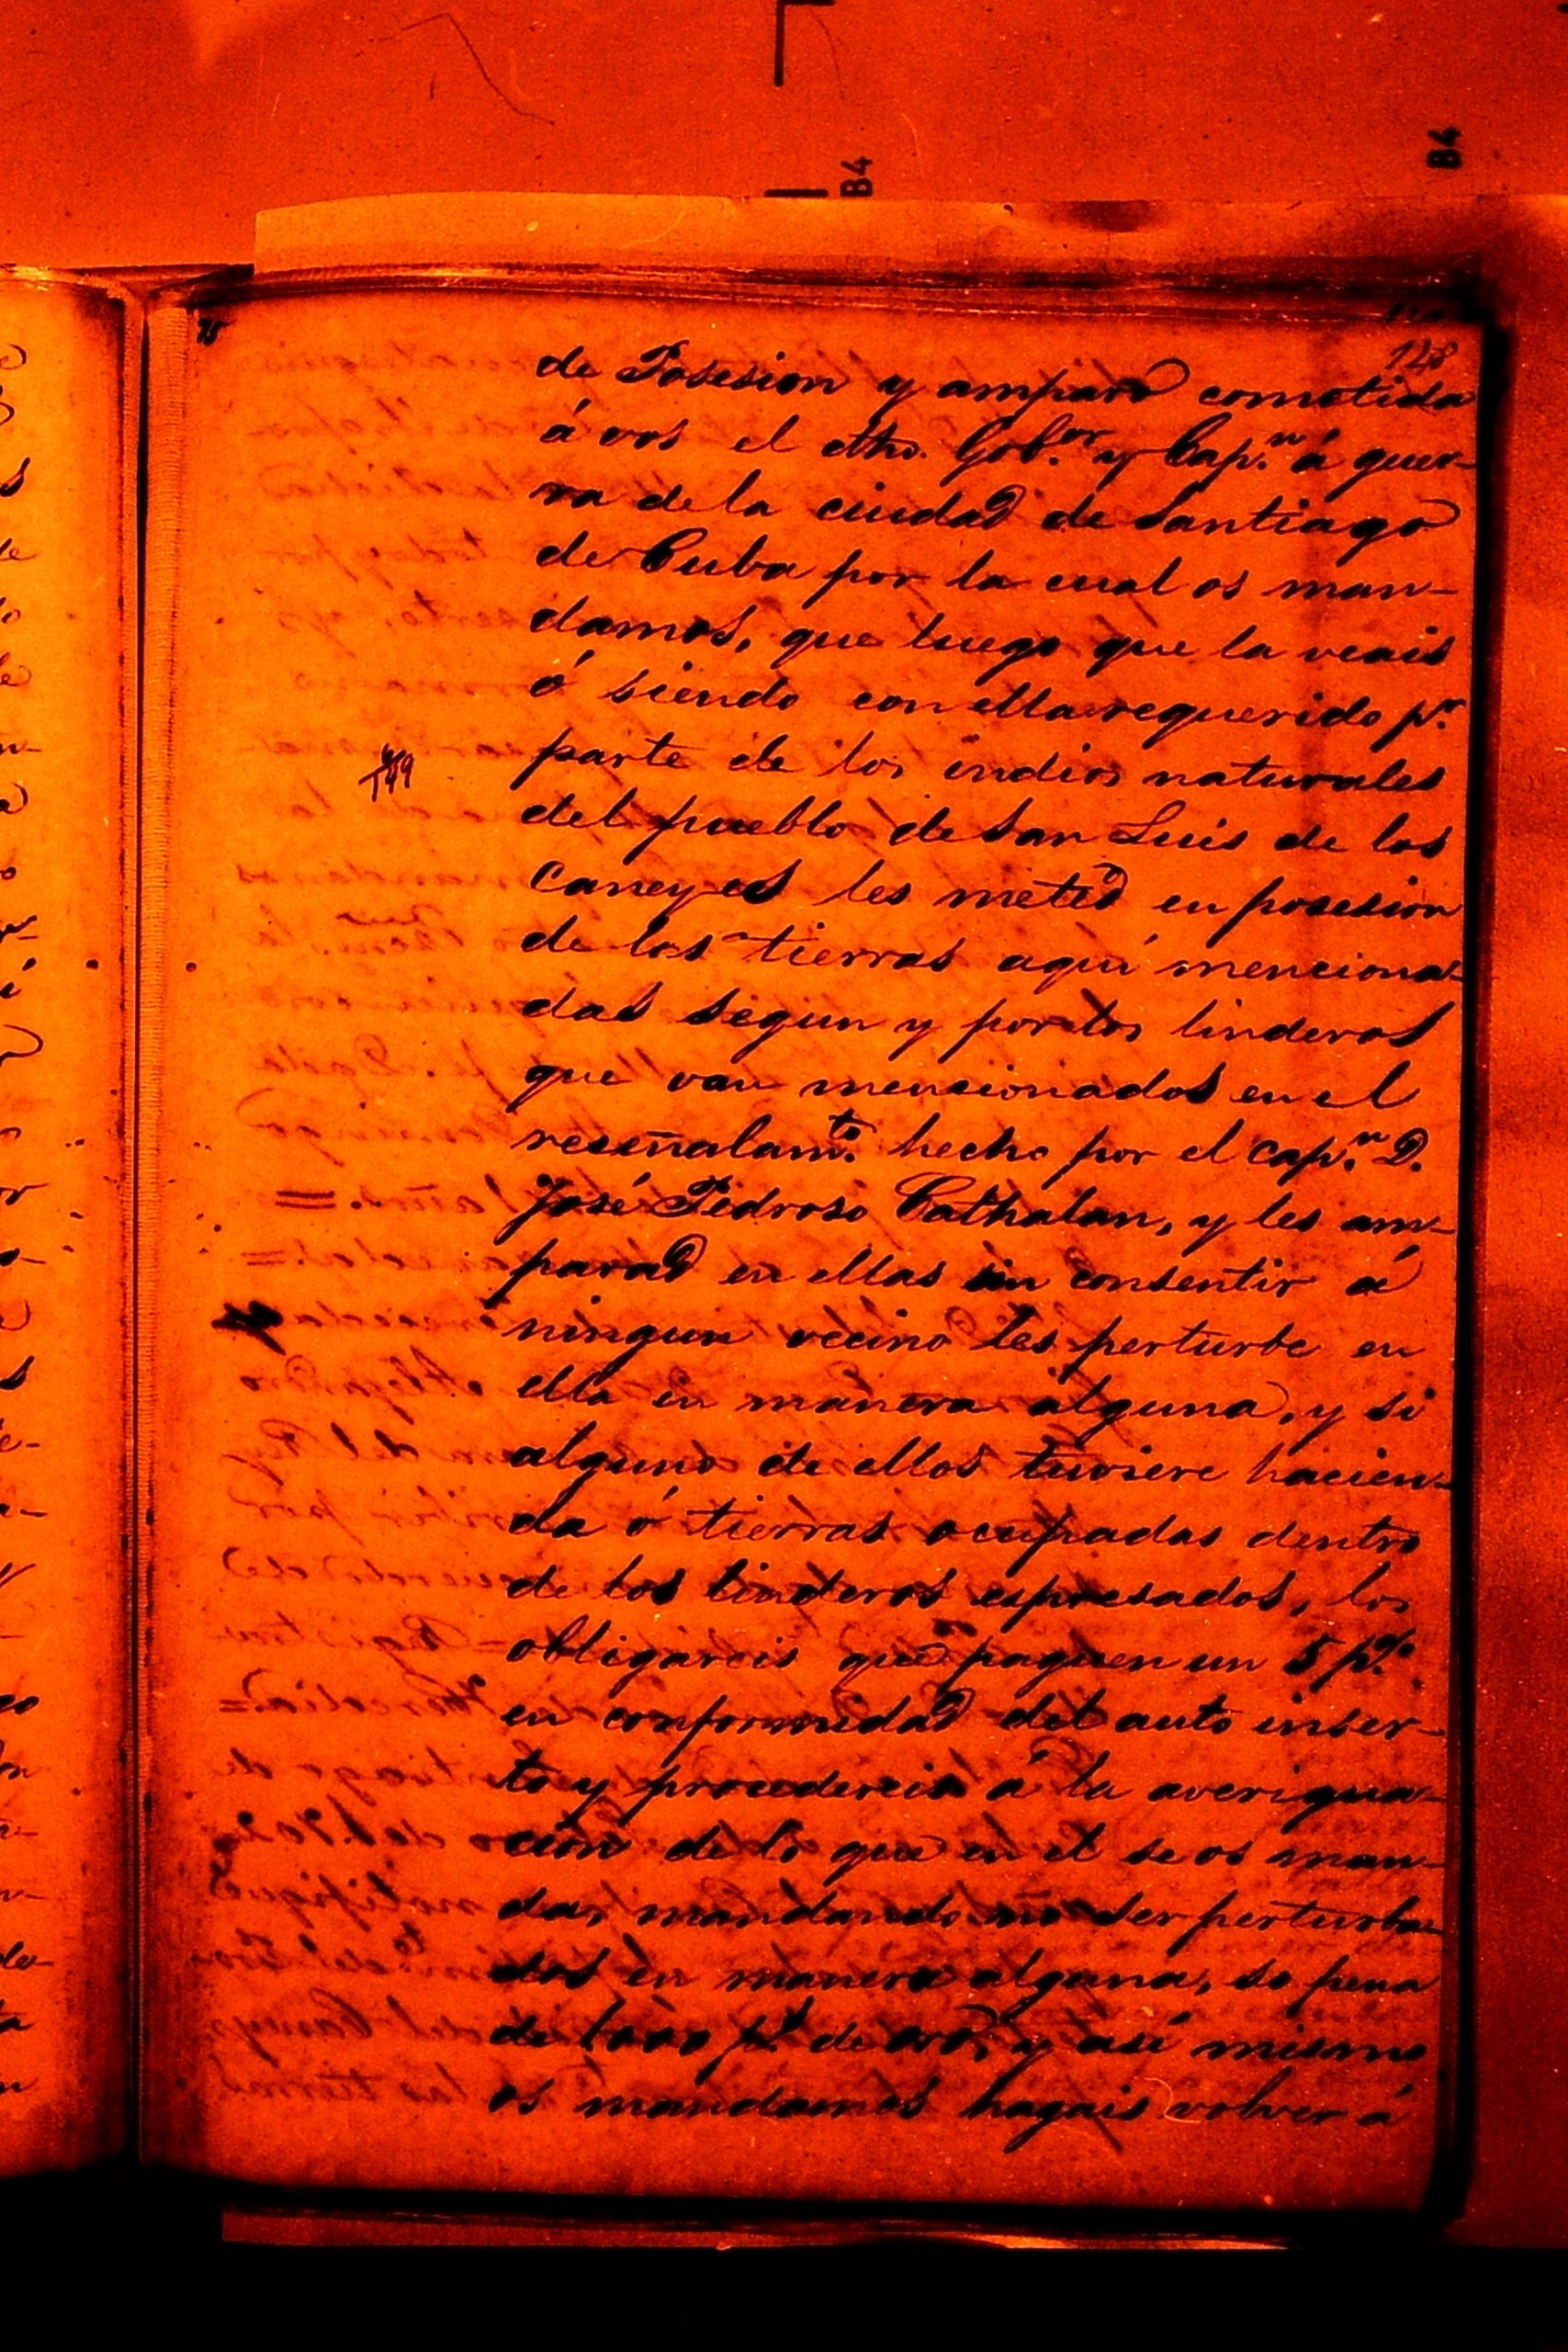 B4
B4
128
de Posesion y amparo cometida
á vos el dho. Gob.or y Cap.n á guer-
ra de la ciudad de Santiago
de Cuba por la cual os man-
damos, que luego que la veais
ó siendo con ella requerido p.r
parte de los indios naturales
del pueblo de San Luis de los
Caneyes les meted en posesion
de las tierras aquí menciona-
das segun y por los linderos
que van mencionados en el
reseñalam.to hecho por el cap.n D.
José Pedroso Cathalan, y les am-
parad en ellas sin consentir á
ningun vecino les perturbe en
ella en manera alguna, y si
alguno de ellos tuviere hacien-
da ó tierras ocupadas dentro
de los linderos espresados, los
obligareis que paguen un 5 p.%
en conformidad del auto inser-
to y procedereis á la averigua-
cion de lo que en él se os man-
da, mandando no ser perturba-
dos en manera alguna, so pena
de 1000 p.s de oro, y así mismo
os mandamos hagais volver á